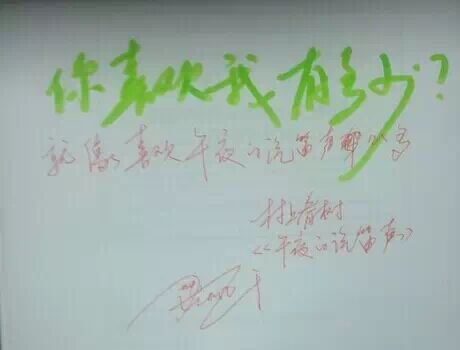 你喜欢我有多少？
就像喜欢午夜的汽笛声那么多
村上春树
《午夜的汽笛声》